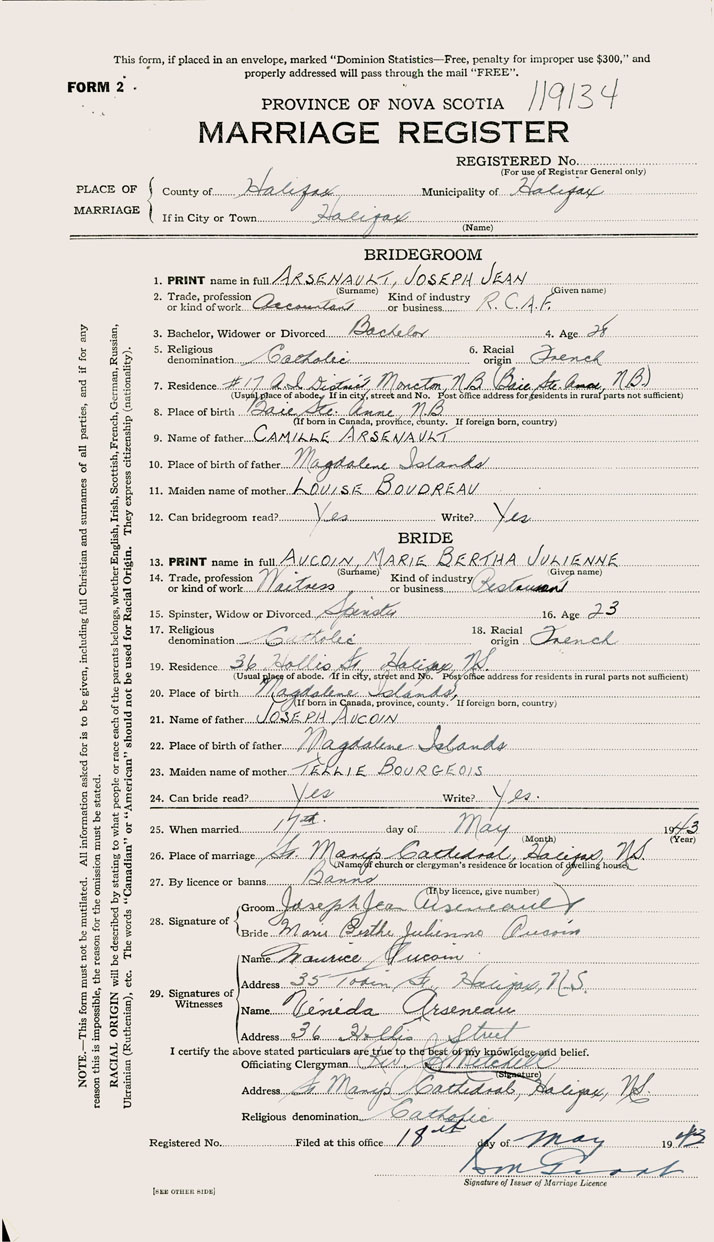 This form, if placed in an envelope, marked "Dominion Statistics—Free, penalty for improper use $300," and
properly addressed will pass through the mail "FREE".
FORM 2
PROVINCE OF NOVA SCOTIA 119134
MARRIAGE REGISTER
REGISTERED No.
(For use of Registrar General only)
PLACE OF MARRIAGE
County of Halifax Municipality of Halifax
If in City or Town Halifax
(Name)
BRIDEGROOM
1. PRINT name in full ARSENAULT, JOSEPH JEAN
(Surname) (Given name)
2. Trade, profession or kind of work Accountant Kind of industry or business R.C.A.F.
3. Bachelor, Widower or Divorced Bachelor 4. Age 28
5. Religious denomination Catholic 6. Racial origin French
7. Residence #17 A.I. District, Moncton, N.B (Baie Ste. Anne, N.B.)
(Usual place of abode. If in city, street and No. Post office address for residents in rural parts not sufficient)
8. Place of birth Baie Ste. Anne, N.B
(If born in Canada, province, county. If foreign born, country)
9. Name of father CAMILLE ARSENAULT
10. Place of birth of father Magdalene Islands
11. Maiden name of mother LOUISE BOUDREAU
12. Can bridegroom read? Yes Write? Yes
BRIDE
13. PRINT name in full AUCOIN, MARIE BERTHA JULIENNE
(Surname) (Given name)
14. Trade, profession or kind of work Waitress Kind of industry or business Restaurant
15. Spinster, Widow or Divorced Spinster 16. Age 23
17. Religious denomination Catholic 18. Racial origin French
19. Residence 36 Hollis St., Halifax, N.S.
(Usual place of abode. If in city, street and No. Post office address for residents in rural parts not sufficient)
20. Place of birth Magdalene Islands,
(If born in Canada, province, county. If foreign born, country)
21. Name of father JOSEPH AUCOIN
22. Place of birth of father Magdalene Islands
23. Maiden name of mother TELLIE BOURGEOIS
24. Can bride read? Yes Write? Yes.
25. When married 17th. day of May 1943
(Month) (Year)
26. Place of marriage St. Mary's Cathedral, Halifax, N.S.
(Name of church or clergyman's residence or location of dwelling house)
27. By licence or banns Banns
(If by licence, give number)
28. Signature of
Groom Joseph Jean Arseneault
Bride Marie Berthe Julienne Aucoin
29. Signatures of Witnesses
Name Maurice Aucoin
Address 35 Tobin St., Halifax, N.S.
Name Vénéda Arseneau
Address 36 Hollis Street
I certify the above stated particulars are true to the best of my knowledge and belief.
Officiating Clergyman Rev. Mitchell
(Signature)
Address St Mary's Cathedral, Halifax, N.S.
Religious denomination Catholic
Registered No. Filed at this office 18th day of May 1943
Signature of Issuer of Marriage Licence
[SEE OTHER SIDE]
NOTE.—This form must not be mutilated. All information asked for is to be given, including full Christian and surnames of all parties, and if for any
reason this is impossible, the reason for the omission must be stated.
RACIAL ORIGIN will be described by stating to what people or race each of the parents belongs, whether English, Irish, Scottish, French, German, Russian,
Ukrainian (Ruthenian), etc. The words "Canadian" or "American" should not be used for Racial Origin. They express citizenship (nationality).